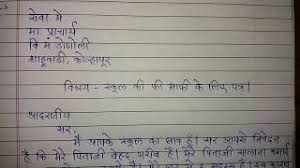 सेवा में
मा प्राचार्य
वि मं डोणोली
शाहूवाडी, कोल्हापूर
विषय - स्कूल की फी माफी के लिए पत्र।
आदरणीय
सर
मैं आपके स्कूल का छात्र हूँ। सर आपसे निवेदन
है कि मेरे पिताजी बेहद गरीब है। मेरे पिताजी सालाना कमाई